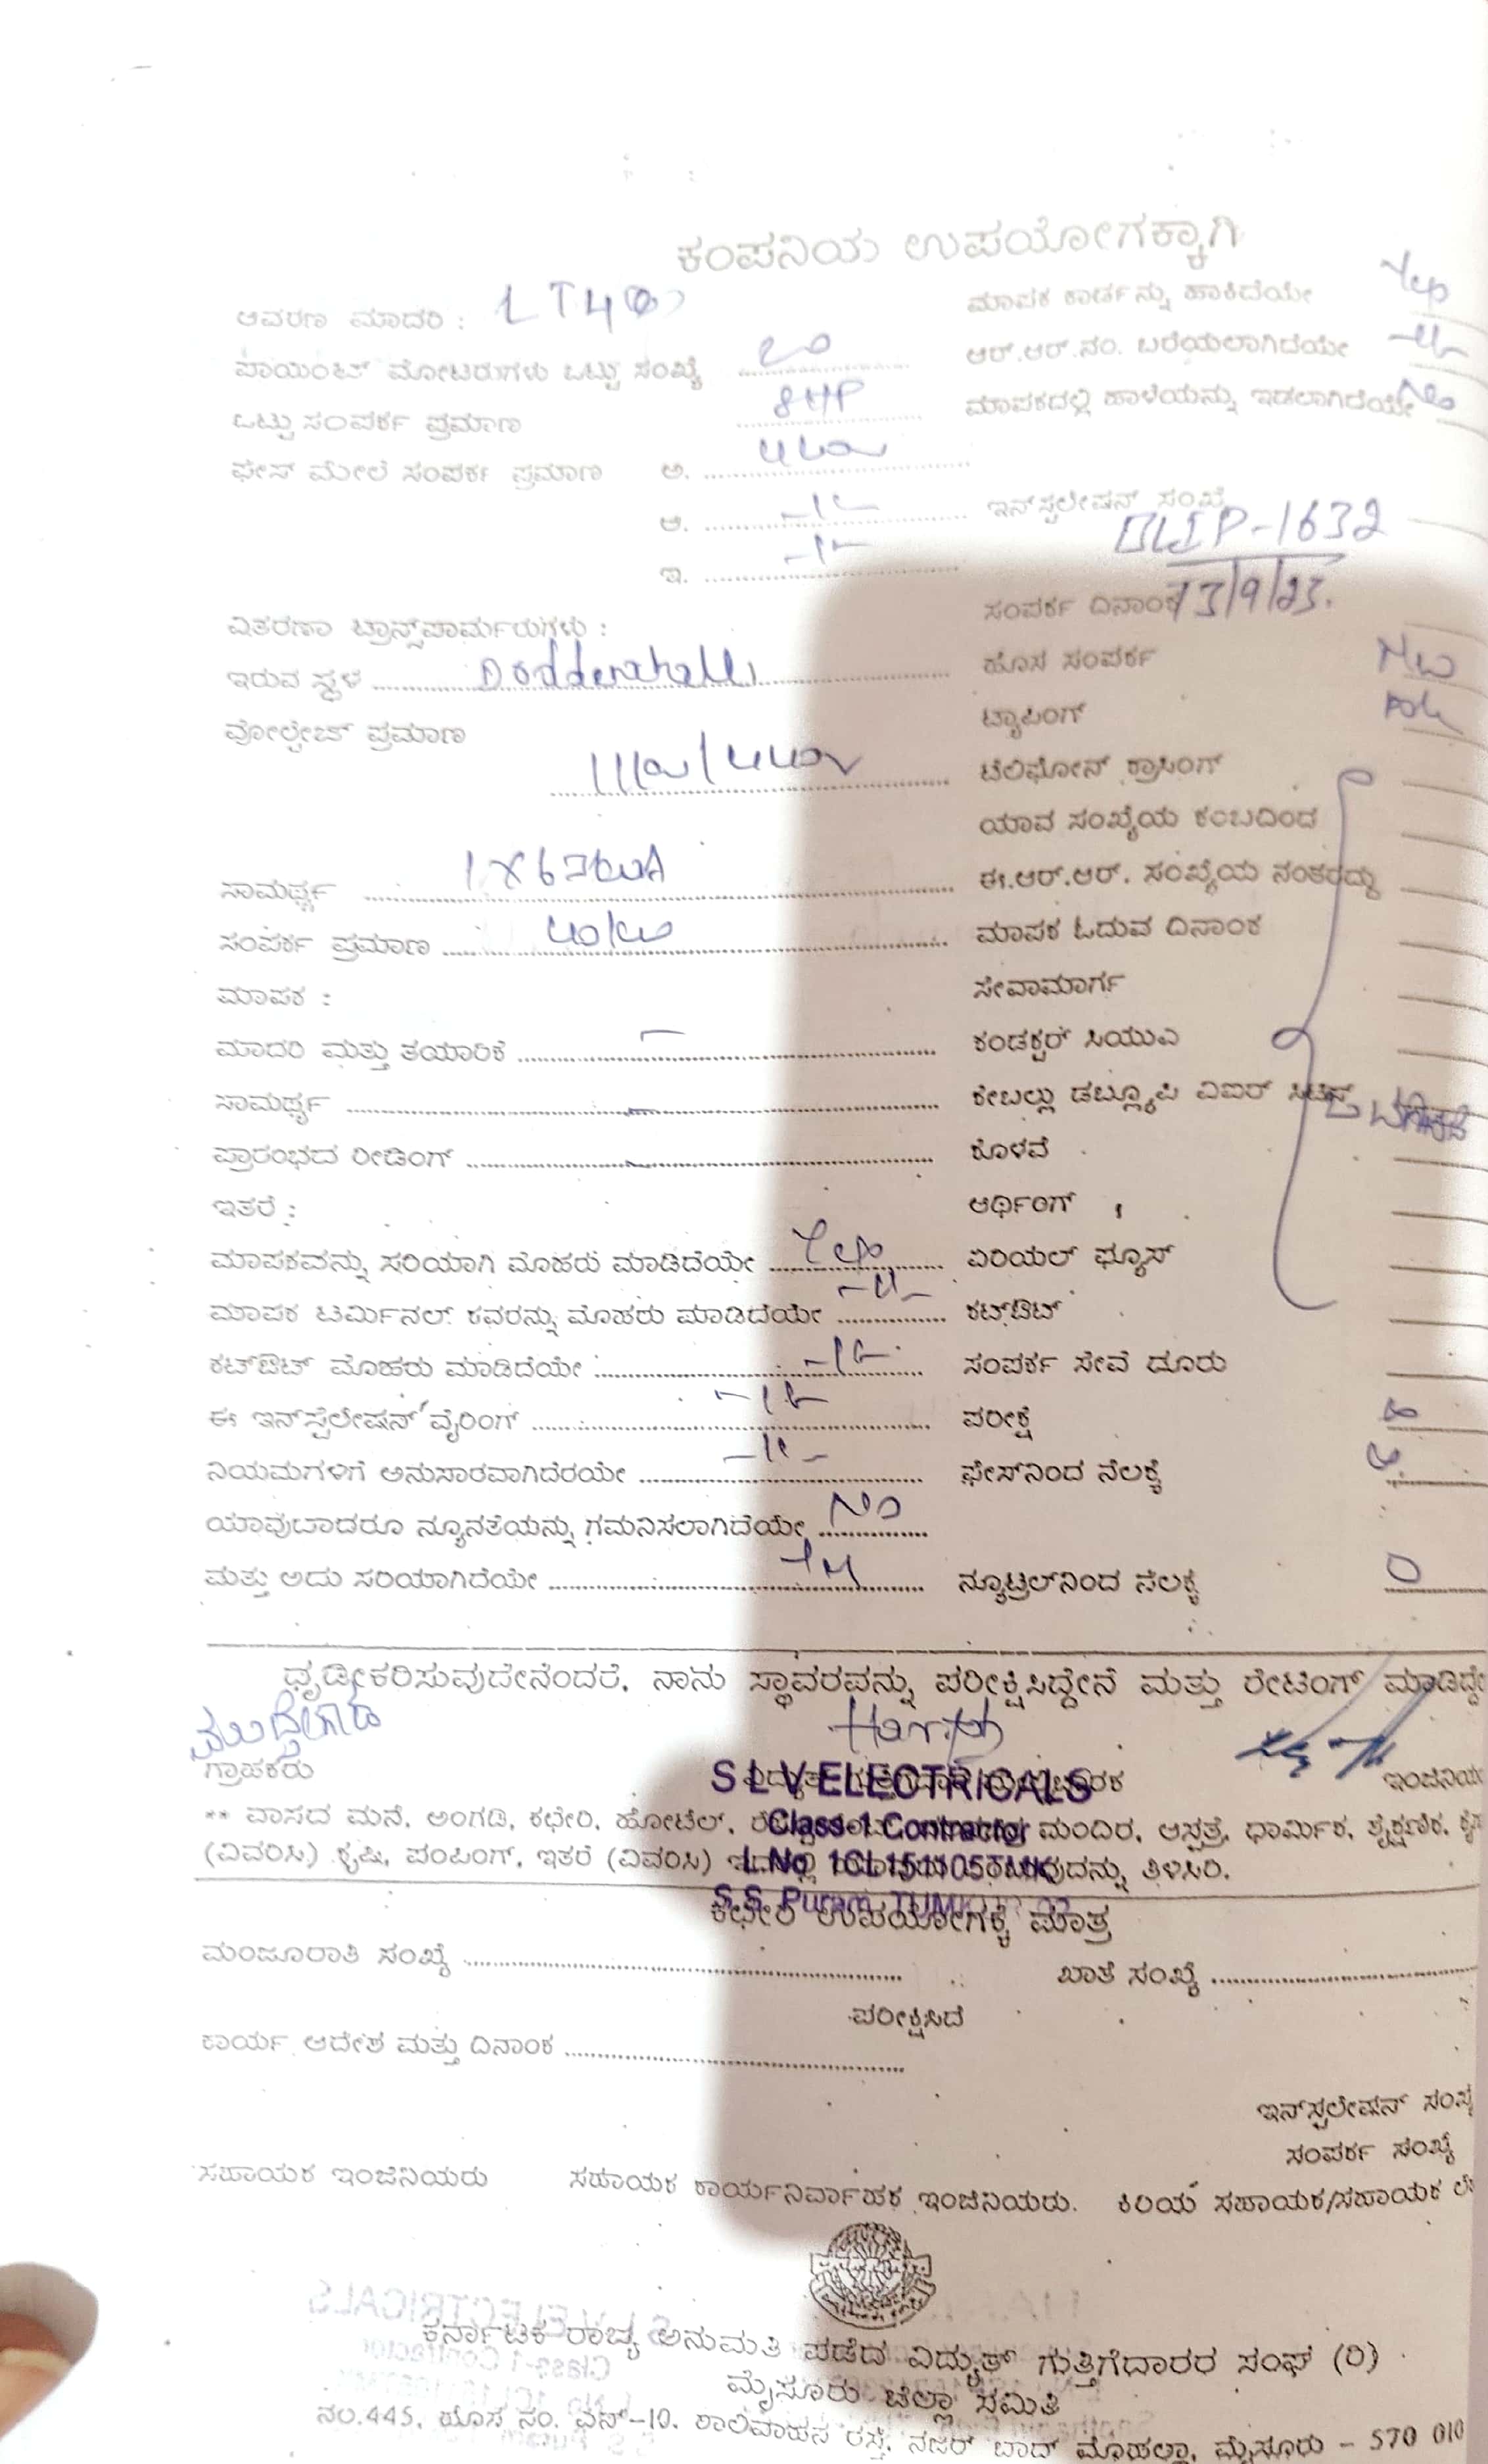 ಕಂಪನಿಯ ಉಪಯೋಗಕ್ಕಾಗಿ
ಆವರಣ ಮಾದರಿ : LT4
ಮಾಪಕ ಕಾರ್ಡನ್ನು ಹಾಕಿದೆಯೇ Yes
ಪಾಯಿಂಟ್ ಮೋಟರುಗಳು ಒಟ್ಟು ಸಂಖ್ಯೆ
ಆರ್.ಆರ್.ನಂ. ಬರೆಯಲಾಗಿದೆಯೇ -11-
ಒಟ್ಟು ಸಂಪರ್ಕ ಪ್ರಮಾಣ 8HP
ಮಾಪಕದಲ್ಲಿ ಹಾಳೆಯನ್ನು ಇಡಲಾಗಿದೆಯೇ No
ಫೇಸ್ ಮೇಲೆ ಸಂಪರ್ಕ ಪ್ರಮಾಣ ಅ.
ಆ. -11-
ಇನ್‌ಸ್ಟಲೇಷನ್ ಸಂಖ್ಯೆ
IP-1632
ಇ. -11-
ಸಂಪರ್ಕ ದಿನಾಂಕ 13/9/23.
ವಿತರಣಾ ಟ್ರಾನ್ಸ್‌ಪಾರ್ಮರುಗಳು :
ಇರುವ ಸ್ಥಳ
ಹೊಸ ಸಂಪರ್ಕ
ವೋಲ್ಟೇಜ್ ಪ್ರಮಾಣ
ಟ್ಯಾಪಿಂಗ್
ಟೆಲಿಫೋನ್ ಕ್ರಾಸಿಂಗ್
ಯಾವ ಸಂಖ್ಯೆಯ ಕಂಬದಿಂದ
ಸಾಮರ್ಥ್ಯ 1X63KVA
ಈ.ಆರ್.ಆರ್. ಸಂಖ್ಯೆಯ ನಂತರದ್ದು
ಸಂಪರ್ಕ ಪ್ರಮಾಣ
ಮಾಪಕ ಓದುವ ದಿನಾಂಕ
ಮಾಪಕ :
ಸೇವಾಮಾರ್ಗ
ಮಾದರಿ ಮತ್ತು ತಯಾರಿಕೆ
ಕಂಡಕ್ಟರ್ ಸಿಯುಎ
ಸಾಮರ್ಥ್ಯ
ಕೇಬಲ್ಲು ಡಬ್ಲ್ಯೂಪಿ ವಿಐರ್
ಪ್ರಾರಂಭದ ರೀಡಿಂಗ್
ಕೊಳವೆ
ಇತರೆ :
ಆರ್ಥಿಂಗ್
ಮಾಪಕವನ್ನು ಸರಿಯಾಗಿ ಮೊಹರು ಮಾಡಿದೆಯೇ Yes
ಏರಿಯಲ್ ಫ್ಯೂಸ್
ಮಾಪಕ ಟರ್ಮಿನಲ್ ಕವರನ್ನು ಮೊಹರು ಮಾಡಿದೆಯೇ -11-
ಕಟ್‌ಔಟ್
ಕಟ್‌ಔಟ್ ಮೊಹರು ಮಾಡಿದೆಯೇ -11-
ಸಂಪರ್ಕ ಸೇವೆ ದೂರು
ಈ ಇನ್‌ಸ್ಪೆಲೇಷನ್ ವೈರಿಂಗ್ -11-
ಪರೀಕ್ಷೆ
ನಿಯಮಗಳಿಗೆ ಅನುಸಾರವಾಗಿದೆರಯೇ -11-
ಫೇಸ್‌ನಿಂದ ನೆಲಕ್ಕೆ
ಯಾವುದಾದರೂ ನ್ಯೂನತೆಯನ್ನು ಗಮನಿಸಲಾಗಿದೆಯೇ NO
ಮತ್ತು ಅದು ಸರಿಯಾಗಿದೆಯೇ
ನ್ಯೂಟ್ರಲ್‌ನಿಂದ ನೆಲಕ್ಕೆ 0
ಧೃಡೀಕರಿಸುವುದೇನೆಂದರೆ, ನಾನು ಸ್ಥಾವರವನ್ನು ಪರೀಕ್ಷಿಸಿದ್ದೇನೆ ಮತ್ತು ರೇಟಿಂಗ್ ಮಾಡಿದ್ದೇ
ಗ್ರಾಹಕರು
S L V ELECTRICALS
Class-1 Contractor
** ವಾಸದ ಮನೆ, ಅಂಗಡಿ, ಕಛೇರಿ, ಹೋಟೆಲ್, ಮಂದಿರ, ಆಸ್ಪತ್ರೆ, ಧಾರ್ಮಿಕ, ಶೈಕ್ಷಣಿಕ,
(ವಿವರಿಸಿ) ಕೃಷಿ, ಪಂಪಿಂಗ್, ಇತರೆ (ವಿವರಿಸಿ) ತಿಳಿಸಿರಿ.
L.No. 1CL151105TMK
S.S. Puram, TUMKUR
ಕಛೇರಿ ಉಪಯೋಗಕ್ಕೆ ಮಾತ್ರ
ಮಂಜೂರಾತಿ ಸಂಖ್ಯೆ
ಖಾತೆ ಸಂಖ್ಯೆ
ಪರೀಕ್ಷಿಸಿದೆ
ಕಾರ್ಯ ಆದೇಶ ಮತ್ತು ದಿನಾಂಕ
ಇನ್‌ಸ್ಟಲೇಷನ್ ಸಂಖ್ಯೆ
ಸಂಪರ್ಕ ಸಂಖ್ಯೆ
ಸಹಾಯಕ ಇಂಜಿನಿಯರು ಸಹಾಯಕ ಕಾರ್ಯನಿರ್ವಾಹಕ ಇಂಜಿನಿಯರು. ಕಿರಿಯ ಸಹಾಯಕ/ಸಹಾಯಕ
ಕರ್ನಾಟಕ ರಾಜ್ಯ ಅನುಮತಿ ಪಡೆದ ವಿದ್ಯುತ್ ಗುತ್ತಿಗೆದಾರರ ಸಂಘ (ರಿ)
ಮೈಸೂರು ಜಿಲ್ಲಾ ಸಮಿತಿ
ನಂ.445, ಹೊಸ ನಂ. ಎನ್-10, ಶಾಲಿವಾಹನ ರಸ್ತೆ, ನಜರ್ ಬಾದ್ ಮೊಹಲ್ಲಾ, ಮೈಸೂರು - 570 010